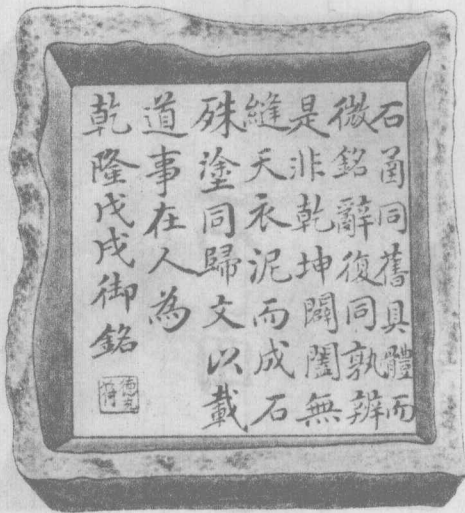 石函同舊具體而
微銘辭復同孰辨
是非乾坤闢闔無
縫天衣泥而成石
殊塗同歸文以載
道事在人為
乾隆戊戌御銘
德充符